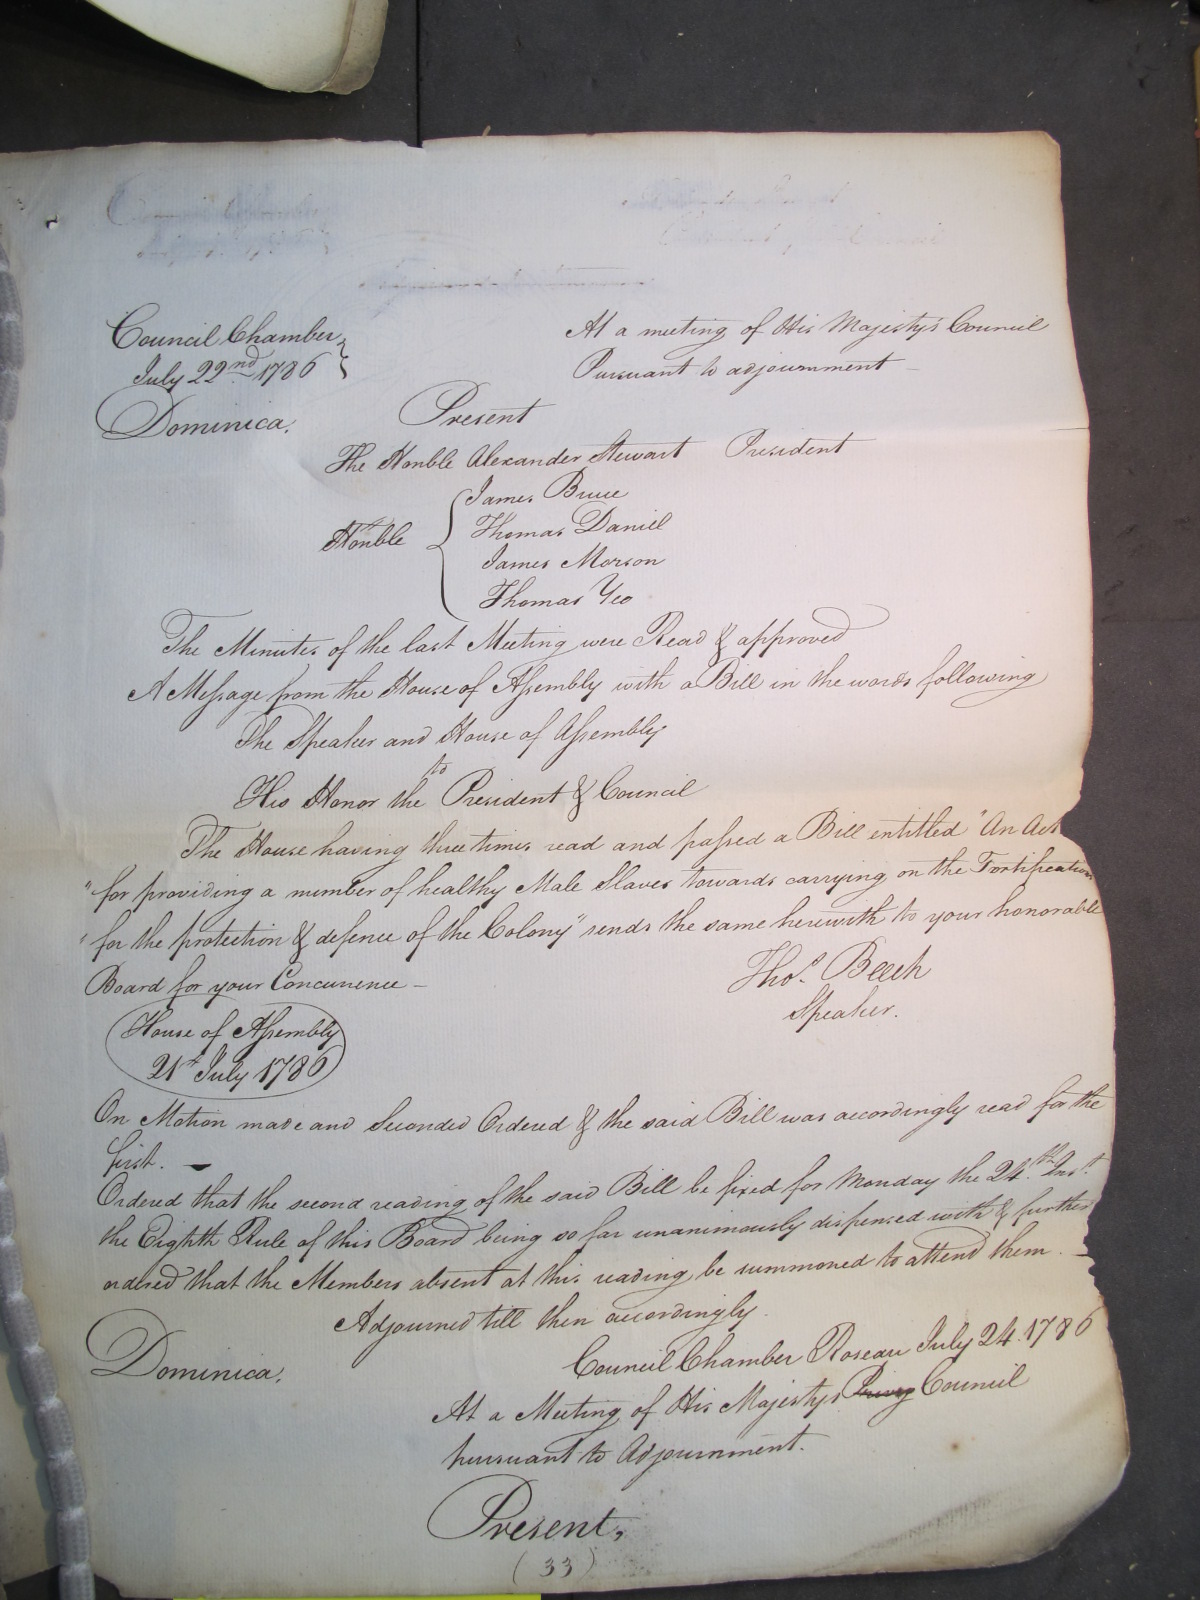 Council Chamber
July 22nd 1786
At a meeting of His Majesty's Council
Pursuant to adjournment -
Dominica.
Present
The Honble Alexander Stewart President
Honble
James Bruce
Thomas Daniell
James Morson
Thomas Yeo
The Minutes of the last Meeting were Read & approved
A Message from the House of Assembly with a Bill in the words following
The Speaker and House of Assembly
to
His Honor the President & Council
The House having three times read and passed a Bill entitled "An Act
"for providing a number of healthy Male Slaves towards carrying on the Fortifications
"for the protection & defence of the Colony" sends the same herewith to your honorable
Board for your Concurrence -
Thos. Beech
Speaker.
House of Assembly
21st July 1786
On Motion made and Seconded Ordered & the said Bill was accordingly read for the
first. -
Ordered that the second reading of the said Bill be fixed for Monday the 24th Inst.
the Eighth Rule of this Board being so far unanimously dispensed with & further
ordered that the Members absent at this reading be summoned to attend them. -
Adjourned till then accordingly.
Dominica.
Council Chamber Roseau July 24. 1786
At a Meeting of His Majestys Privy Council
pursuant to Adjournment.
Present,
(33)